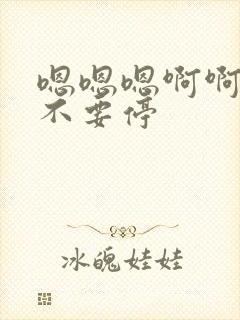 嗯嗯嗯啊啊
不要停
冰魄娃娃